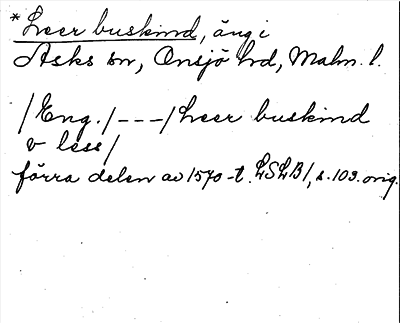 *Leer buskind, äng i
Asks sn, Onsjö hd, Malm. l.
/Eng./---/Leer buskind
v less/
förra delen av 1570-t. LSLB1, s. 103. orig.